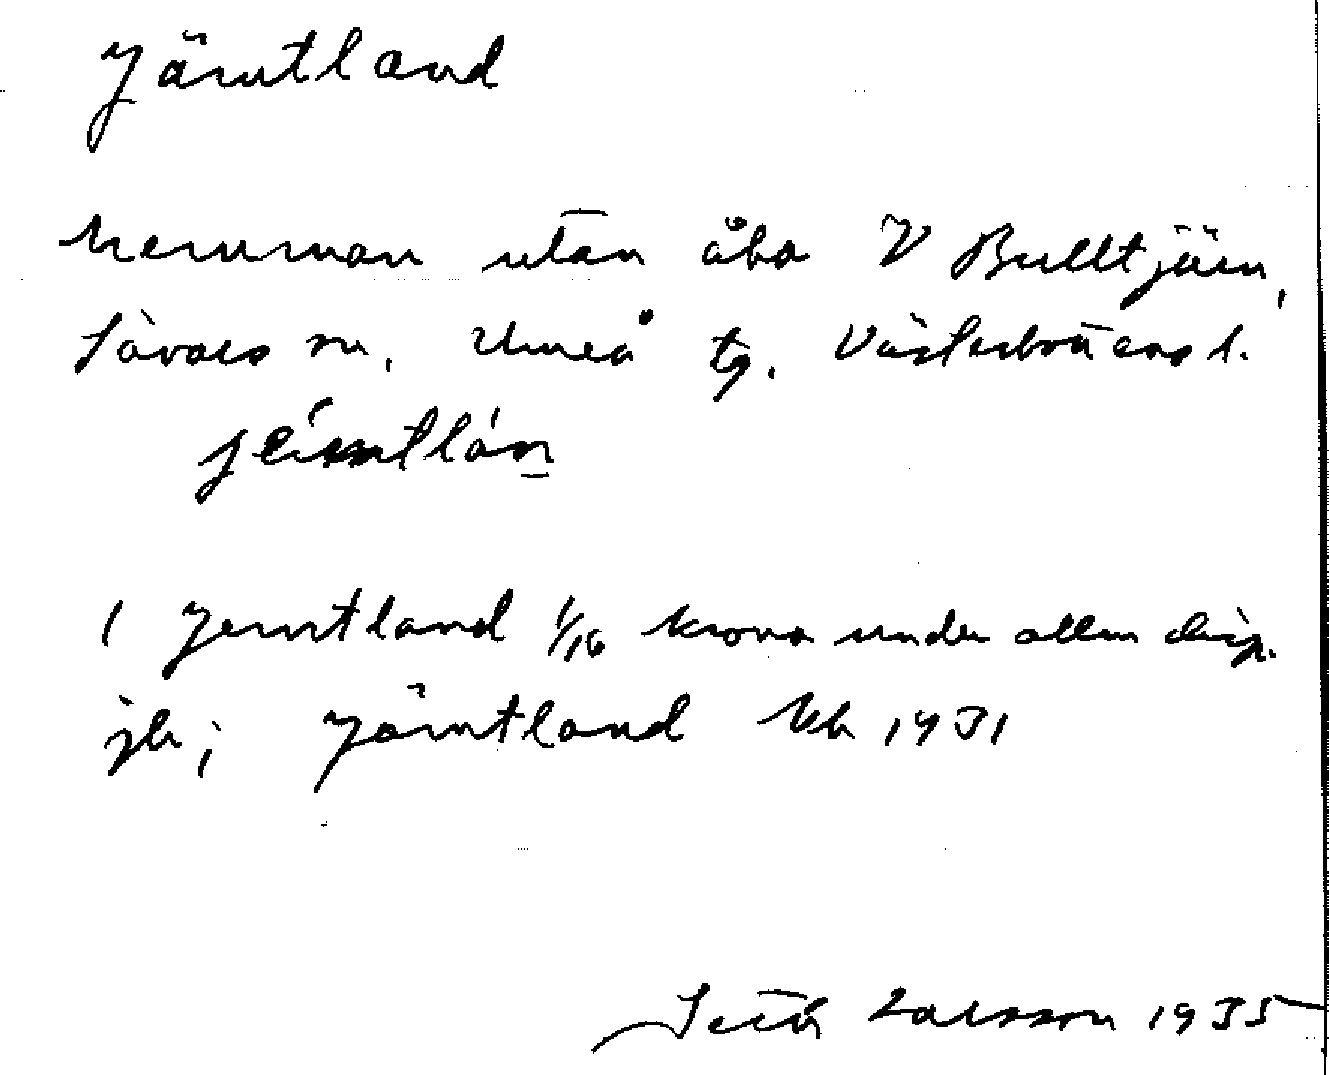 Jämtland
hemman utan åbo V Bulltjärn,
Sävars sn, Umeå tg. Västerbottens l.
jämtlán
1 Jemtland 1/16 krona under allm disp.
jb; Jämtland Kb 1931
Seth Larsson 1935